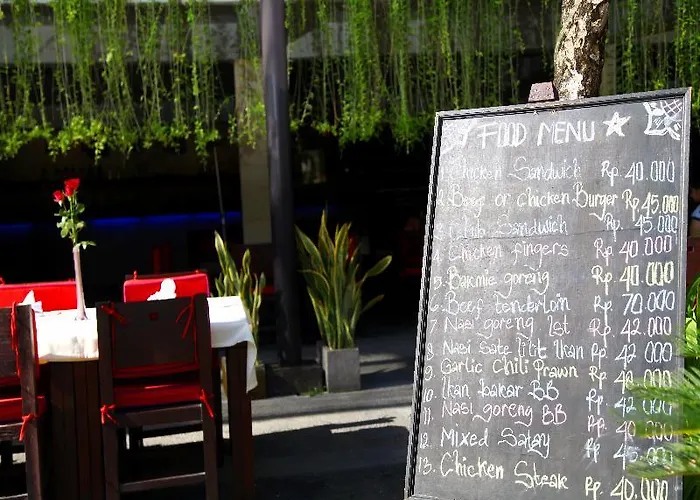 FOOD MENU
Chicken Sandwich Rp. 40.000
Beef or chicken Burger Rp 45.000
Club Sandwich Rp. 45.000
Chicken fingers Rp 40.000
5. Bakmie goreng Rp. 40.000
6. Beef Tenderloin Rp. 70.000
7 Nasi goreng Lst Rp. 42.000
8. Nasi Sate lilit Ikan Rp. 42 000
9. Garlic Chili Prawn Rp. 48.000
10. Ikan bakar BB Rp. 42.000
11. Nasi goreng BB Rp. 40
12. Mixed Satay Rp. 45.000
13. Chicken Steak Rp. 40.000